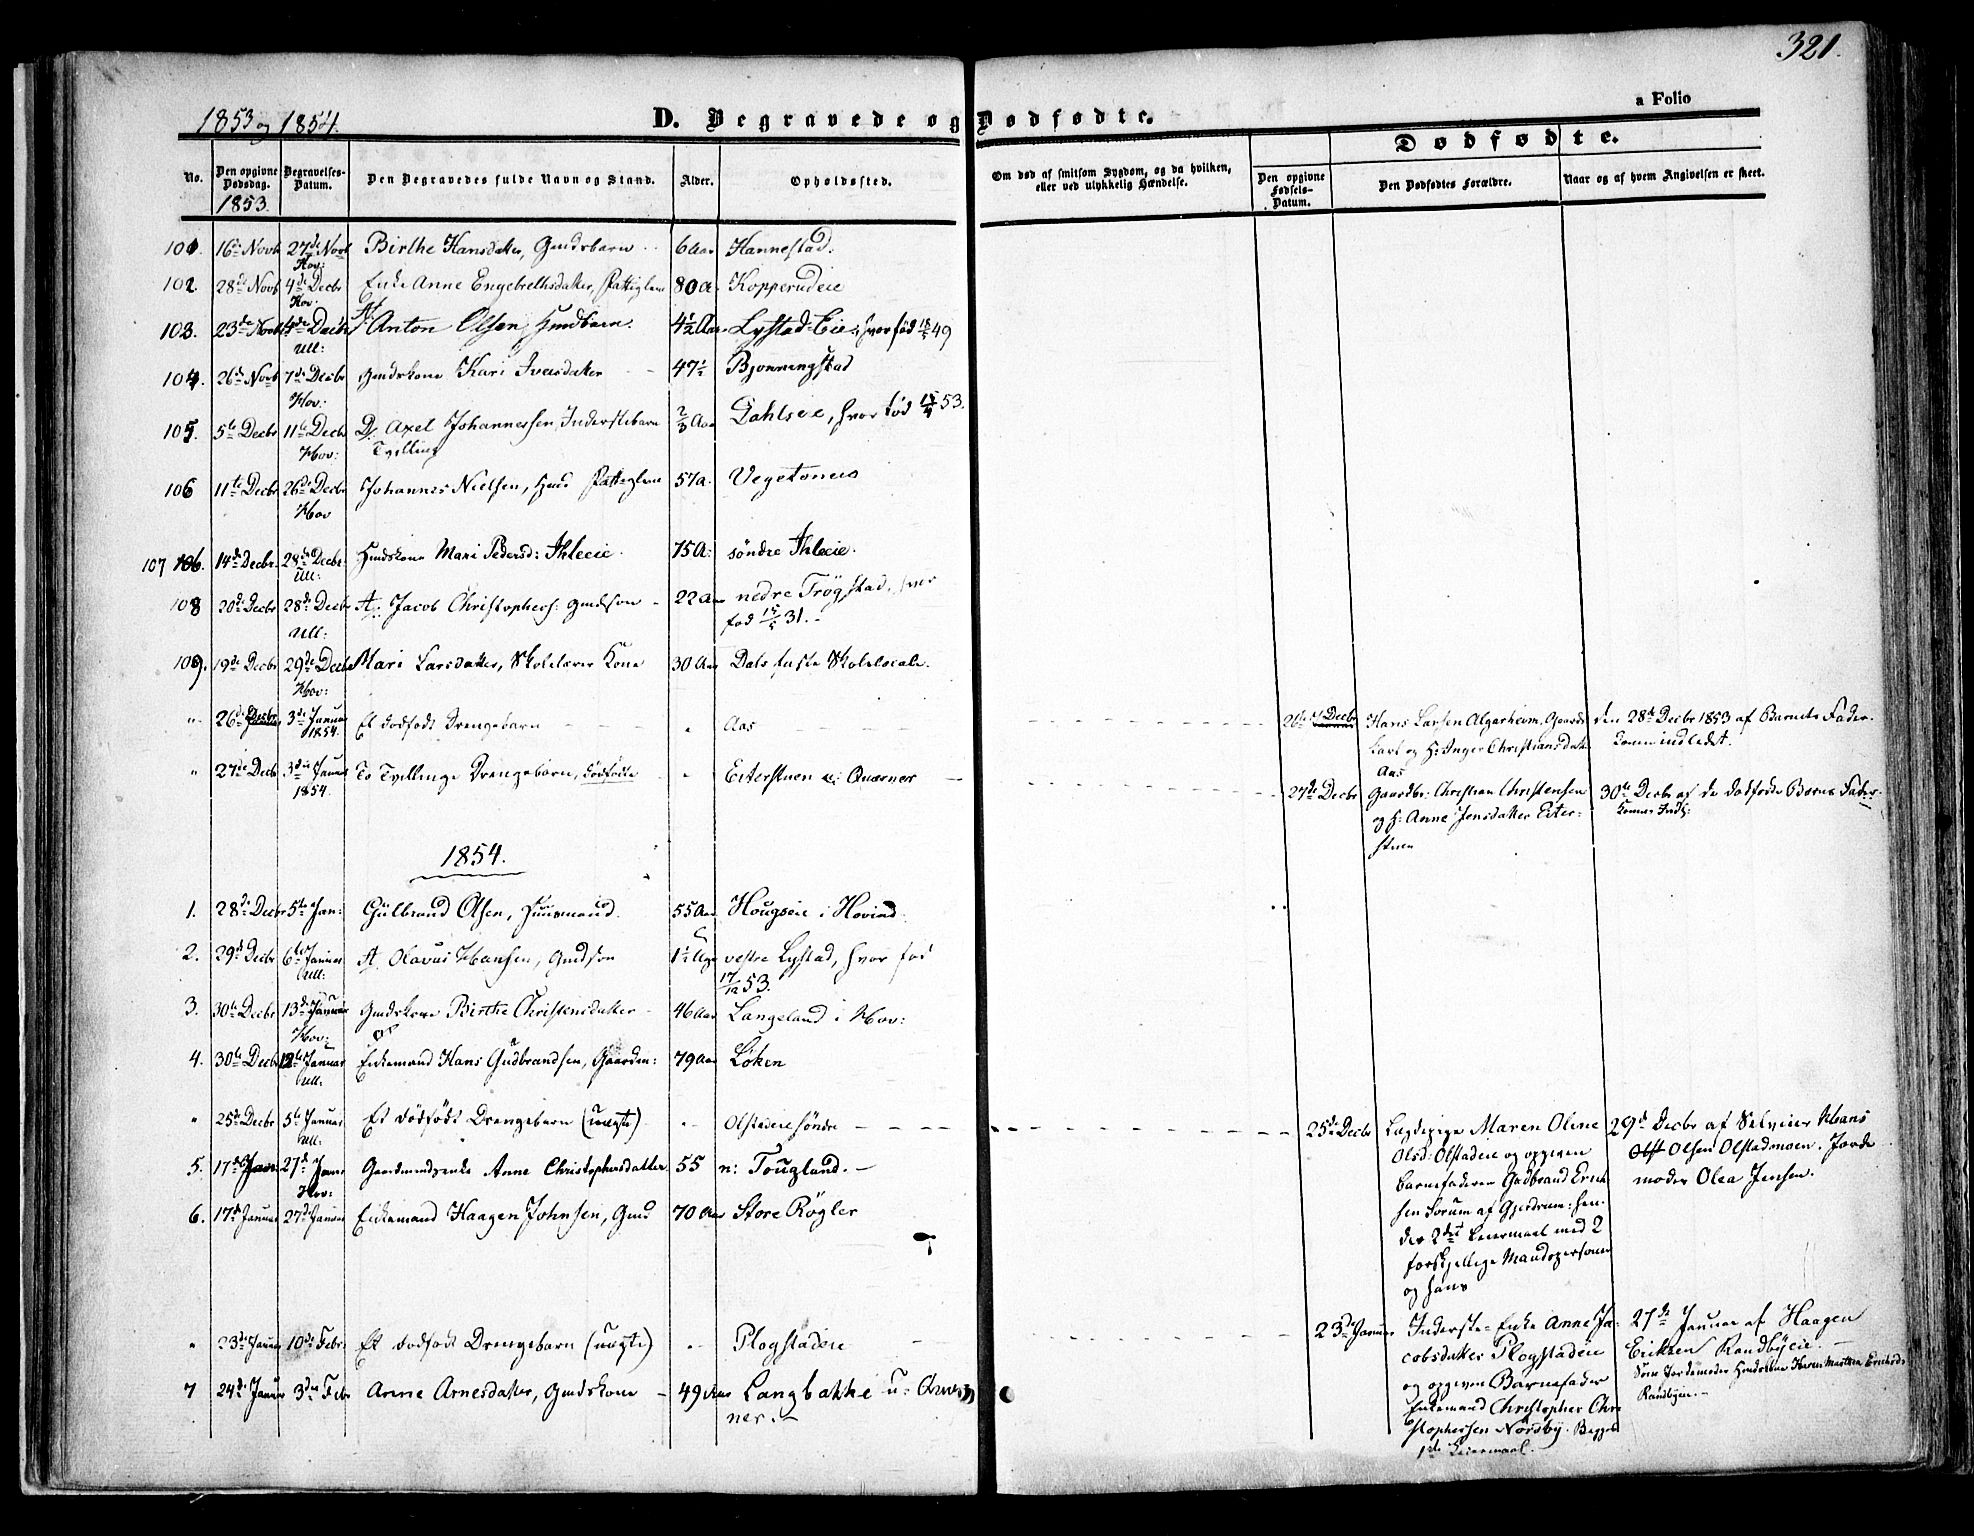 321.
a Folio
1853 og 1854.
D. Begravede og Dødfødte.
Dødfødte.
No.
Den opgivne Dødsdag.
Begravelses-Datum.
Den Begravedes fulde Navn og Stand.
Alder.
Opholdssted.
Om død af smitsom Sygdom, og da hvilken, eller ved ulykkelig Hændelse.
Den opgivne Fødsels-Datum.
Den Dødfødtes Forældre.
Naar og af hvem Angivelsen er skeet.
1853.
101 16de Novb 27de Novb Birthe Hansdatter, Gmdsbarn 6 Aar Hannestad.
Hov:
102. 28de Novb 4de Decbr Enke Anne Engebrethsdatter, Fattiglem 80 A. Kopperudeie
Hov:
103. 23de Novb 4de Decbr A: Anton Olsen, Hmdbarn. 4½ Aar Lystad-Eie, hvor fød 49
Ull:
104. 26de Novb 7de Decbr Gmdskone Kari Iversdatter 47½ Bjonningstad
Hov:
105. 5te Decbr 11te Decbr D: Axel Johannessen, Inderstebarn ⅔ Aar Dahlseie, hvor fød 53.
Hov: Tvilling
106 11te Decbr 26de Decbr Johannes Nielsen, Fattiglem 57 A.
Hov
107 106. 14de Decbr. 28de Decbr. Hmdskone Mari Pedersd: Ihleeie. 75 A: søndre Ihleeie.
Ull:
108 20de Decbr 28de Decbr A: Jacob Christophers: Gmdsøn 22 Aar nedre Trøgstad, hvor
Ull: fød 15/5 31.
109. 19de Decbr 29de Decbr Mari Larsdatter, Skolelærer Kone 30 Aar Dals faste Skolelocale.
Hov:
" 26de Decbr 3de Januar Et dødfødt Drengebarn " Aas 26de Decbr Hans Larsen Algarheim, Gaard den 28de Decbr 1853 af Barnets Fader.
1854. og H: Inger Christiansdatt
Aas
" 27de Decb 3die Januar To Tvillinge Drengebørn, dødfødte " Eiterstuen 27de Decbr Gaardbr: Christian Christensen 30te Decbr af de dødfødte Børns Fader.
1854. og H: Anne Jensdatter Eiter-
stuen
1854.
1. 28de Decbr 5te Jan: Gulbrand Olsen, Huusmand. 55 Aar Hougseie i Hovind
2. 29de Decbr 6te Januar A. Olavus Hansen, Gmdsøn vestre Lystad, hvor fød
Ull: 17/12 53.
3. 30te Decbr 13de Januar Gmdskone Birthe Christensdatter 46 Aar Langeland i Hov:
Hov:
4. 30te Decbr 12te Januar Enkemand Hans Gudbrandsen, Gaardm: 79 Aar Løken
Ull:
" 25de Decbr 5te Januar Et dødfødt Drengebarn (uægte) Olstadeie søndre 25de Decbr Lægdspige Maren Oline 29de Decbr af Selveier Hans
Ull: Olsd: Olstadeie og opgiven Olsen Olstadmoen. Jorde
barnefader Gudbrand moder Olea Jensen.
5. 17de Jan: 27de Jan: Gaardmandsenke Anne Christophersdatter 55 n: Touglund.
Hov: af Gjerdrum: hen-
6. 17de Januar 27de Januar Enkemand Haagen Johnsen, Gmd 70 Aar Store Røgler
des 2det Leiermaal med 2
forskjellige Mandspersoner
og hans
" 23de Januar 10de Febr: Et dødfødt Drengebarn (uægte) Plogstadeie 23de Januar Inderste-Enke Anne Ja- 27de Januar af Haagen
cobsdatter Plogstadeie Eriksen Randbyeie.
7 24de Januar 3die Febr Anne Arnesdatter, Gmdskone 49 Aar Langbakke
og opgiven Barnefader
Enkemand Christopher Chri
stophersen Nordby. Begges
1ste Leiermaal.